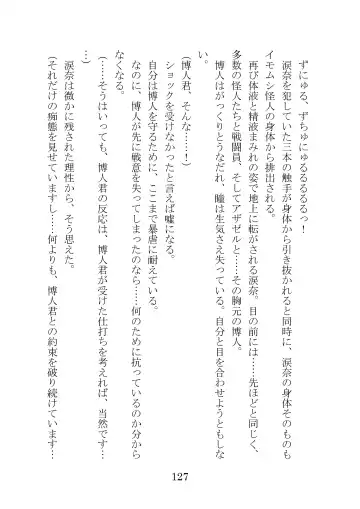 ずにゅる、ずちゅにゅるるるるっ！
涙奈を犯していた三本の触手が身体から引き抜かれると同時に、涙奈の身体そのものも
イモムシ怪人の身体から排出される。
再び体液と精液まみれの姿で地上に転がされる涙奈。目の前には……先ほどと同じく、
多数の怪人たちと戦闘員、そしてアザゼルと……その胸元の博人。
博人はがっくりとうなだれ、瞳は生気さえ失っている。自分と目を合わせようともしな
い。
（博人君、そんな……！）
ショックを受けなかったと言えば嘘になる。
自分は博人を守るために、ここまで暴虐に耐えている。
なのに、博人が先に戦意を失ってしまったのなら……何のために抗っているのか分から
なくなる。
（……そうはいっても、博人君の反応は、博人君が受けた仕打ちを考えれば、当然です…
…）
涙奈は微かに残された理性から、そう思えた。
（それだけの痴態を見せていますし……何よりも、博人君との約束を破り続けています…
127